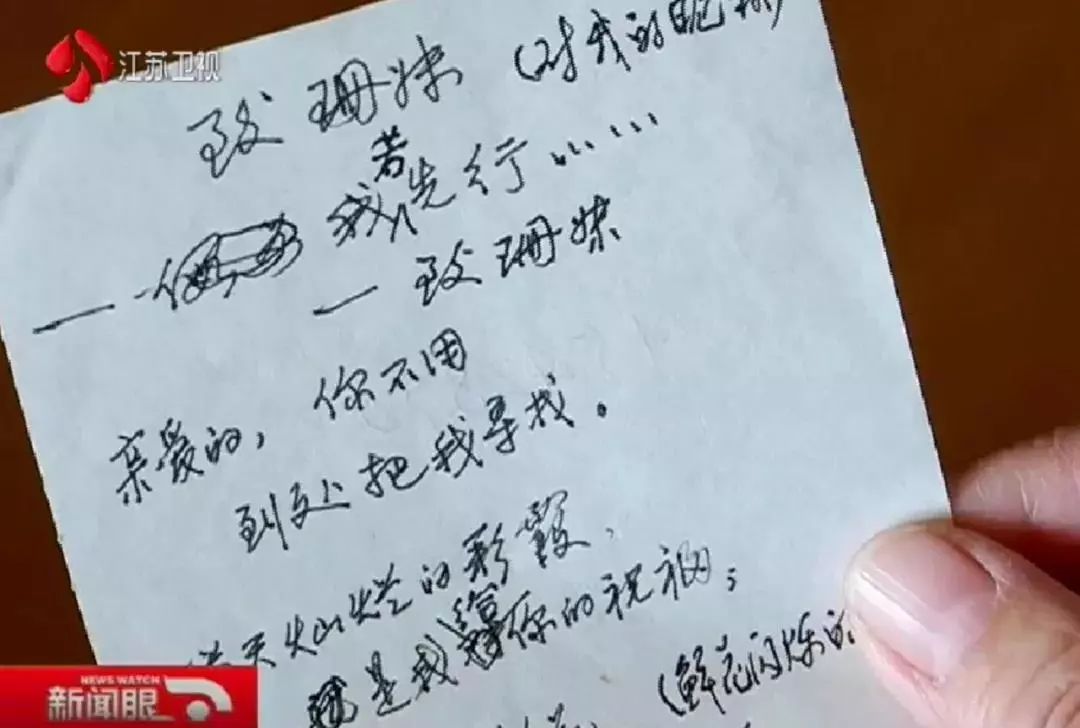 江苏卫视
致珊妹（对我的昵称）
若
—— 我先行……
— 致珊妹
亲爱的，你不用
到处把我寻找。
满天灿烂的彩霞，
是我给你的祝福；
（鲜花闪烁的
NEWS WATCH
新闻眼